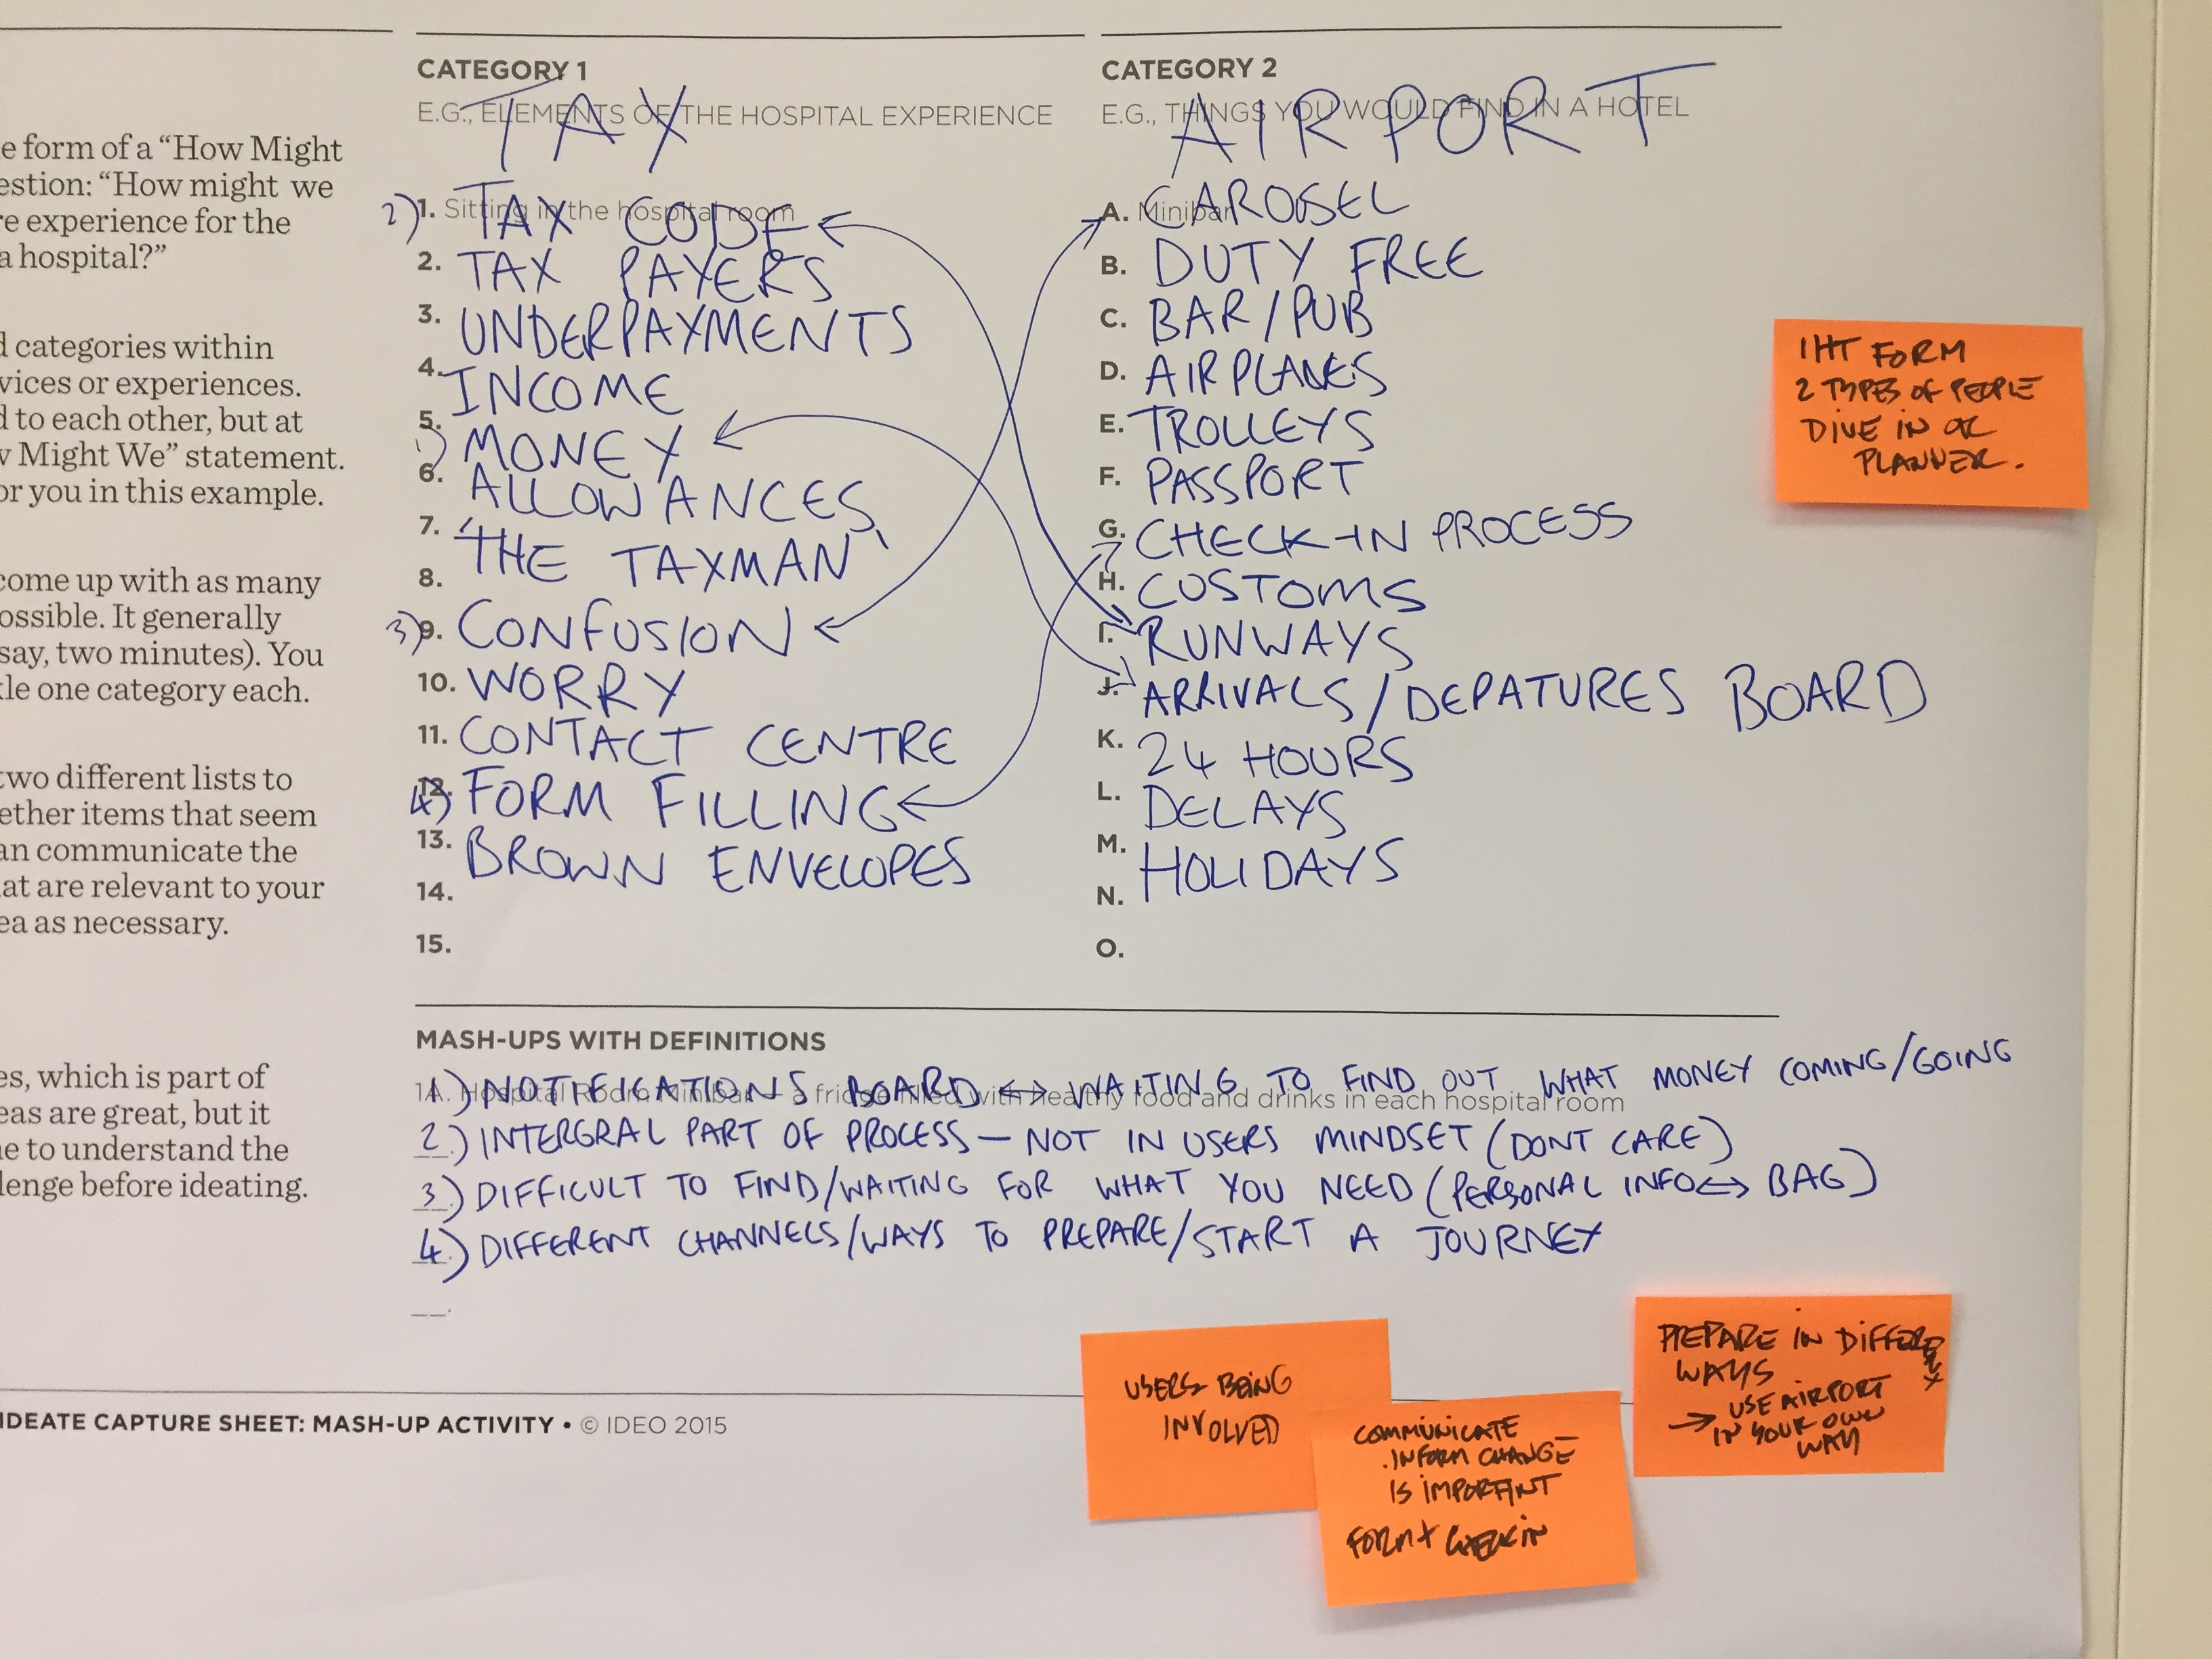 e form of a “How Might
estion: “How might we
re experience for the
a hospital?”
d categories within
vices or experiences.
d to each other, but at
v Might We” statement.
or you in this example.
come up with as many
ossible. It generally
say, two minutes). You
kle one category each.
two different lists to
ether items that seem
an communicate the
at are relevant to your
ea as necessary.
es, which is part of
eas are great, but it
e to understand the
lenge before ideating.
CATEGORY 1
E.G., ELEMENTS OF THE HOSPITAL EXPERIENCE
TAX
2) 1. Sitting in the hospital room
TAX CODE
2. TAX PAYERS
3. UNDERPAYMENTS
4. INCOME
5. 1) MONEY
6. ALLOWANCES
7. 'THE TAXMAN'
8.
3) 9. CONFUSION
10. WORRY
11. CONTACT CENTRE
12. 4) FORM FILLING
13. BROWN ENVELOPES
14.
15.
CATEGORY 2
E.G., THINGS YOU WOULD FIND IN A HOTEL
AIRPORT
A. Minibar
CAROUSEL
B. DUTY FREE
C. BAR/PUB
D. AIRPLANES
E. TROLLEYS
F. PASSPORT
G. CHECK-IN PROCESS
H. CUSTOMS
I. RUNWAYS
J. ARRIVALS/DEPATURES BOARD
K. 24 HOURS
L. DELAYS
M. HOLIDAYS
N.
O.
IHT FORM
2 TYPES OF PEOPLE
DIVE IN OR
PLANNER.
MASH-UPS WITH DEFINITIONS
1A. Hospital Room Minibar – a fridge filled with healthy food and drinks in each hospital room
1) NOTIFICATIONS BOARD ↔ WAITING TO FIND OUT WHAT MONEY COMING/GOING
2) INTERGRAL PART OF PROCESS – NOT IN USERS MINDSET (DONT CARE)
3) DIFFICULT TO FIND/WAITING FOR WHAT YOU NEED (PERSONAL INFO ↔ BAG)
4) DIFFERENT CHANNELS/WAYS TO PREPARE/START A JOURNEY
USERS BEING
INVOLVED
COMMUNICATE
.INFORM CHANGE
IS IMPORTANT
FORM + CHECKIN
PREPARE IN DIFFERENT
WAYS
→ USE AIRPORT
IN YOUR OWN
WAY
IDEATE CAPTURE SHEET: MASH-UP ACTIVITY • © IDEO 2015